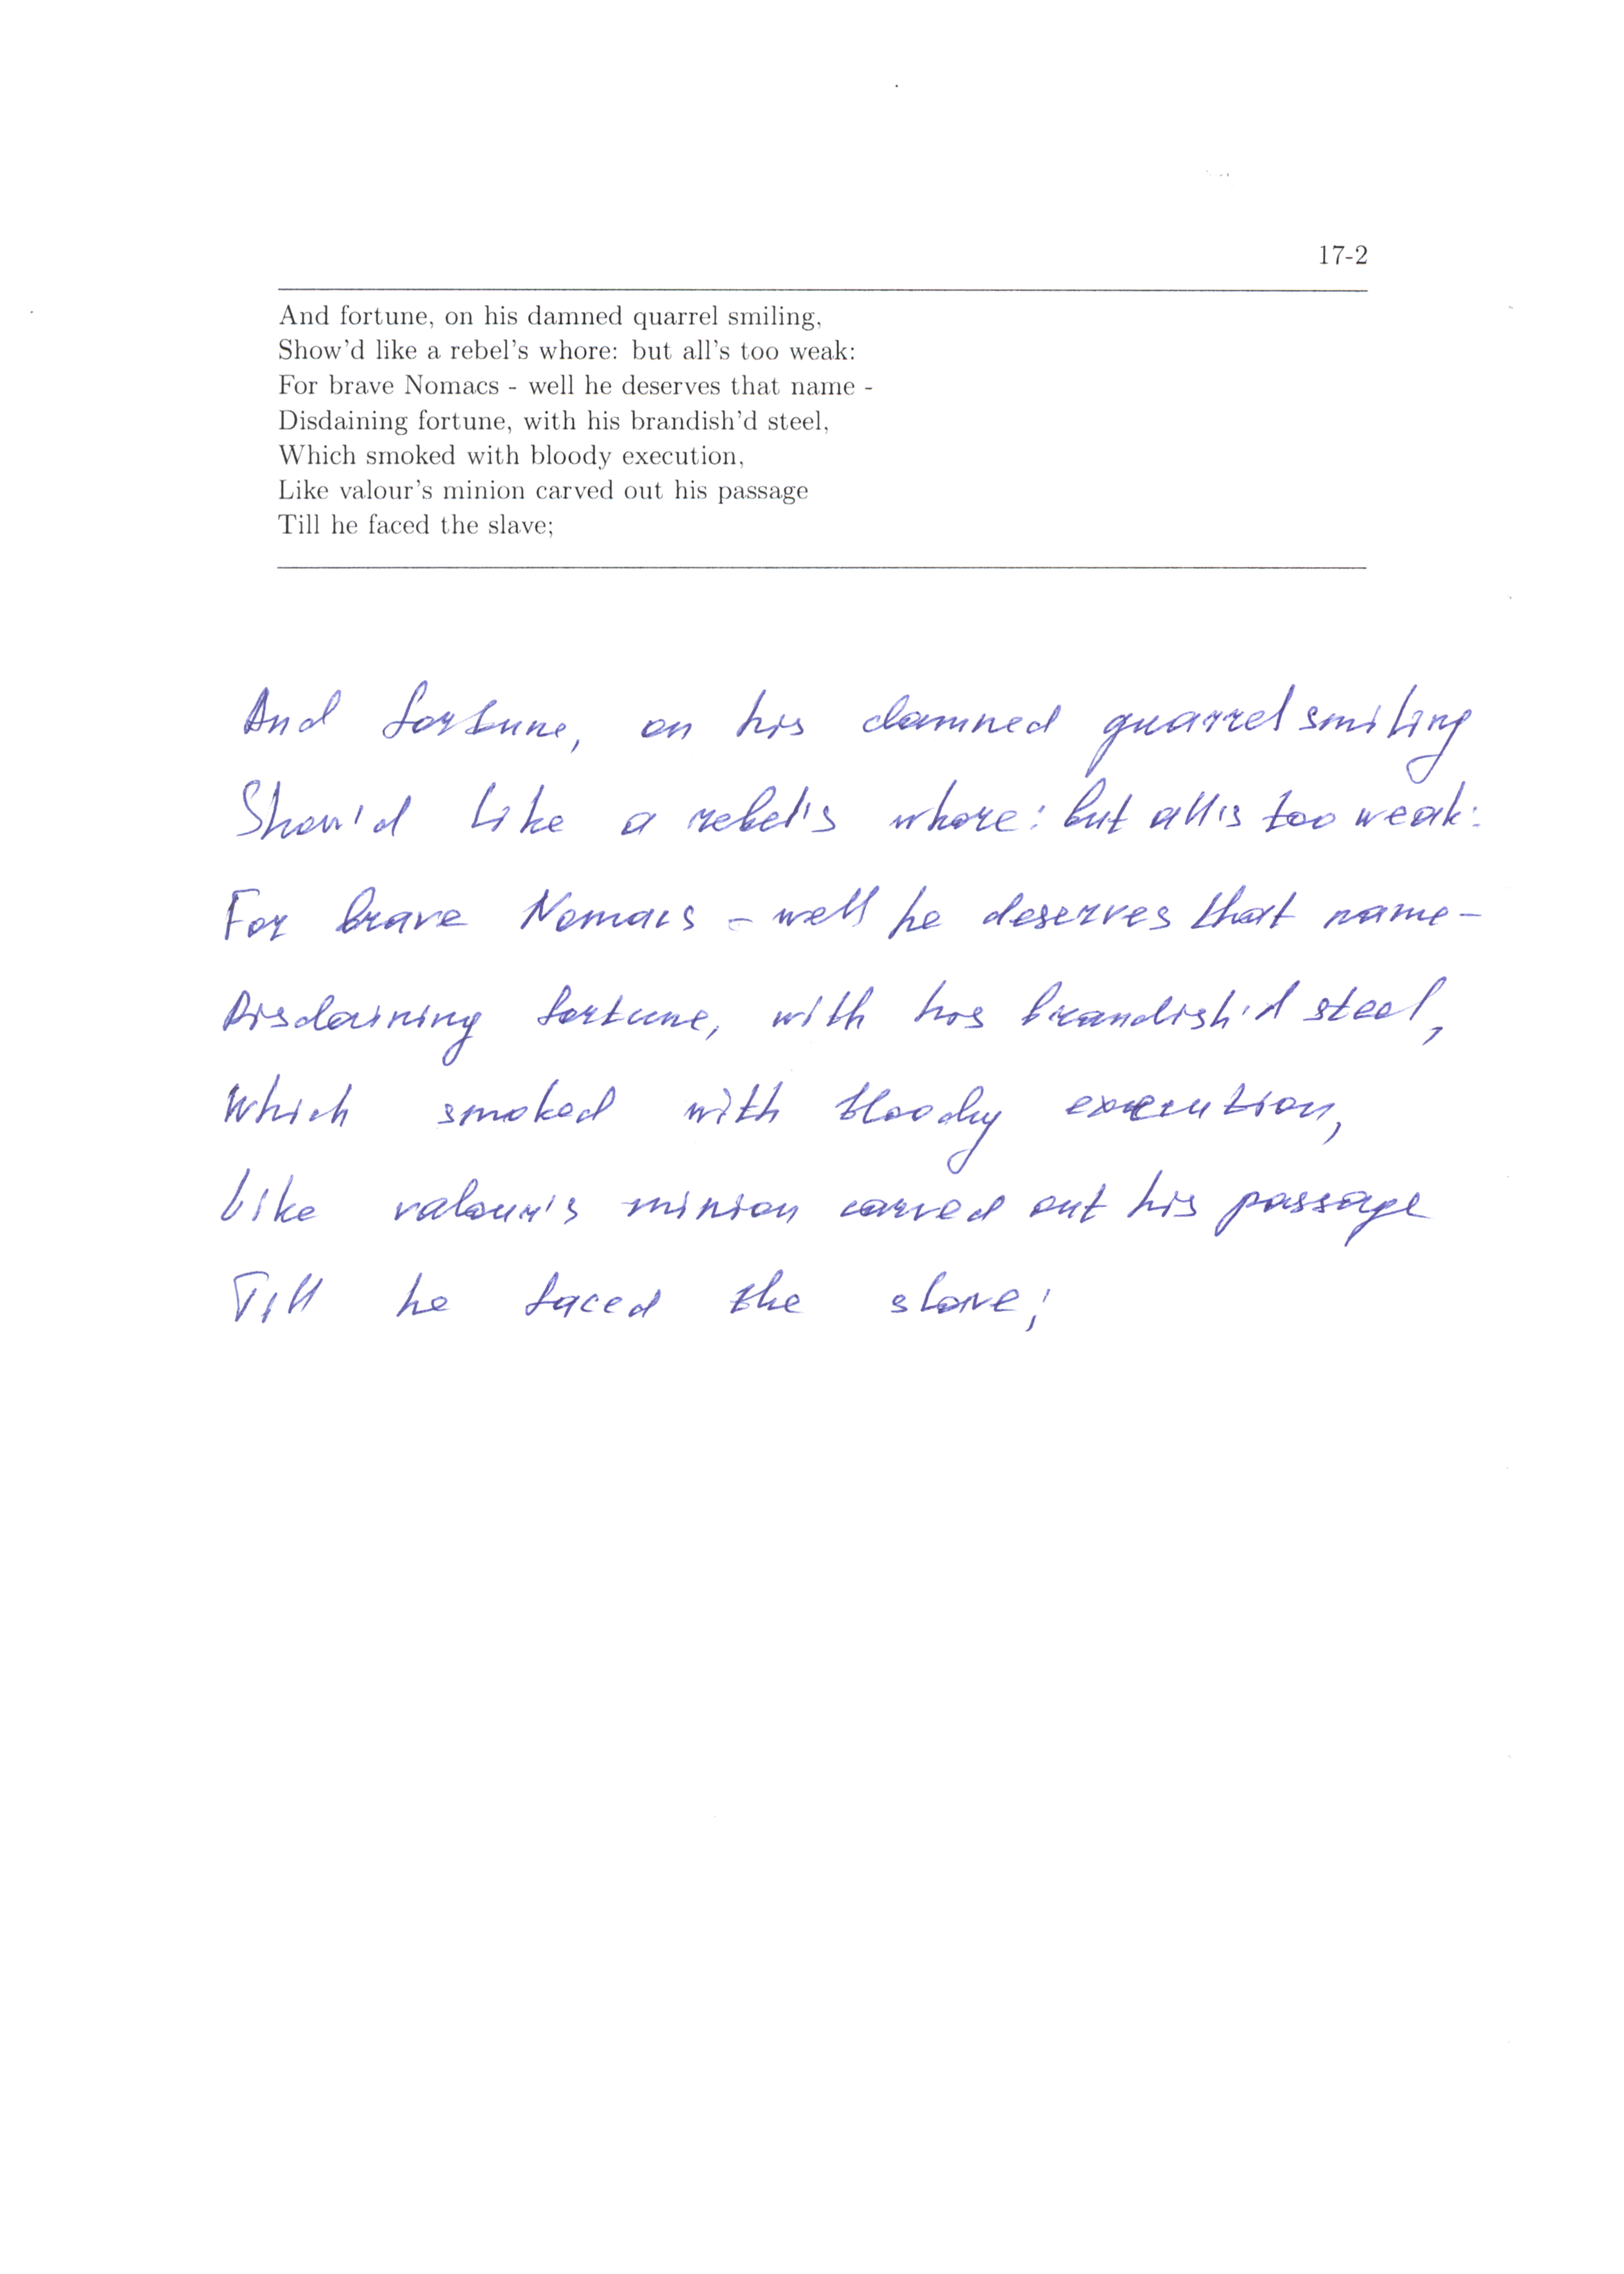 17-2
And fortune, on his damned quarrel smiling,
Show'd like a rebel's whore: but all's too weak:
For brave Nomacs - well he deserves that name -
Disdaining fortune, with his brandish'd steel,
Which smoked with bloody execution,
Like valour's minion carved out his passage
Till he faced the slave;
And fortune, on his damned quarrel smiling
Show'd like a rebel's whore: but all's too weak:
For brave Nomacs - well he deserves that name -
Disdaining fortune, with his brandish'd steel,
Which smoked with bloody execution,
Like valour's minion carved out his passage
Till he faced the slave;